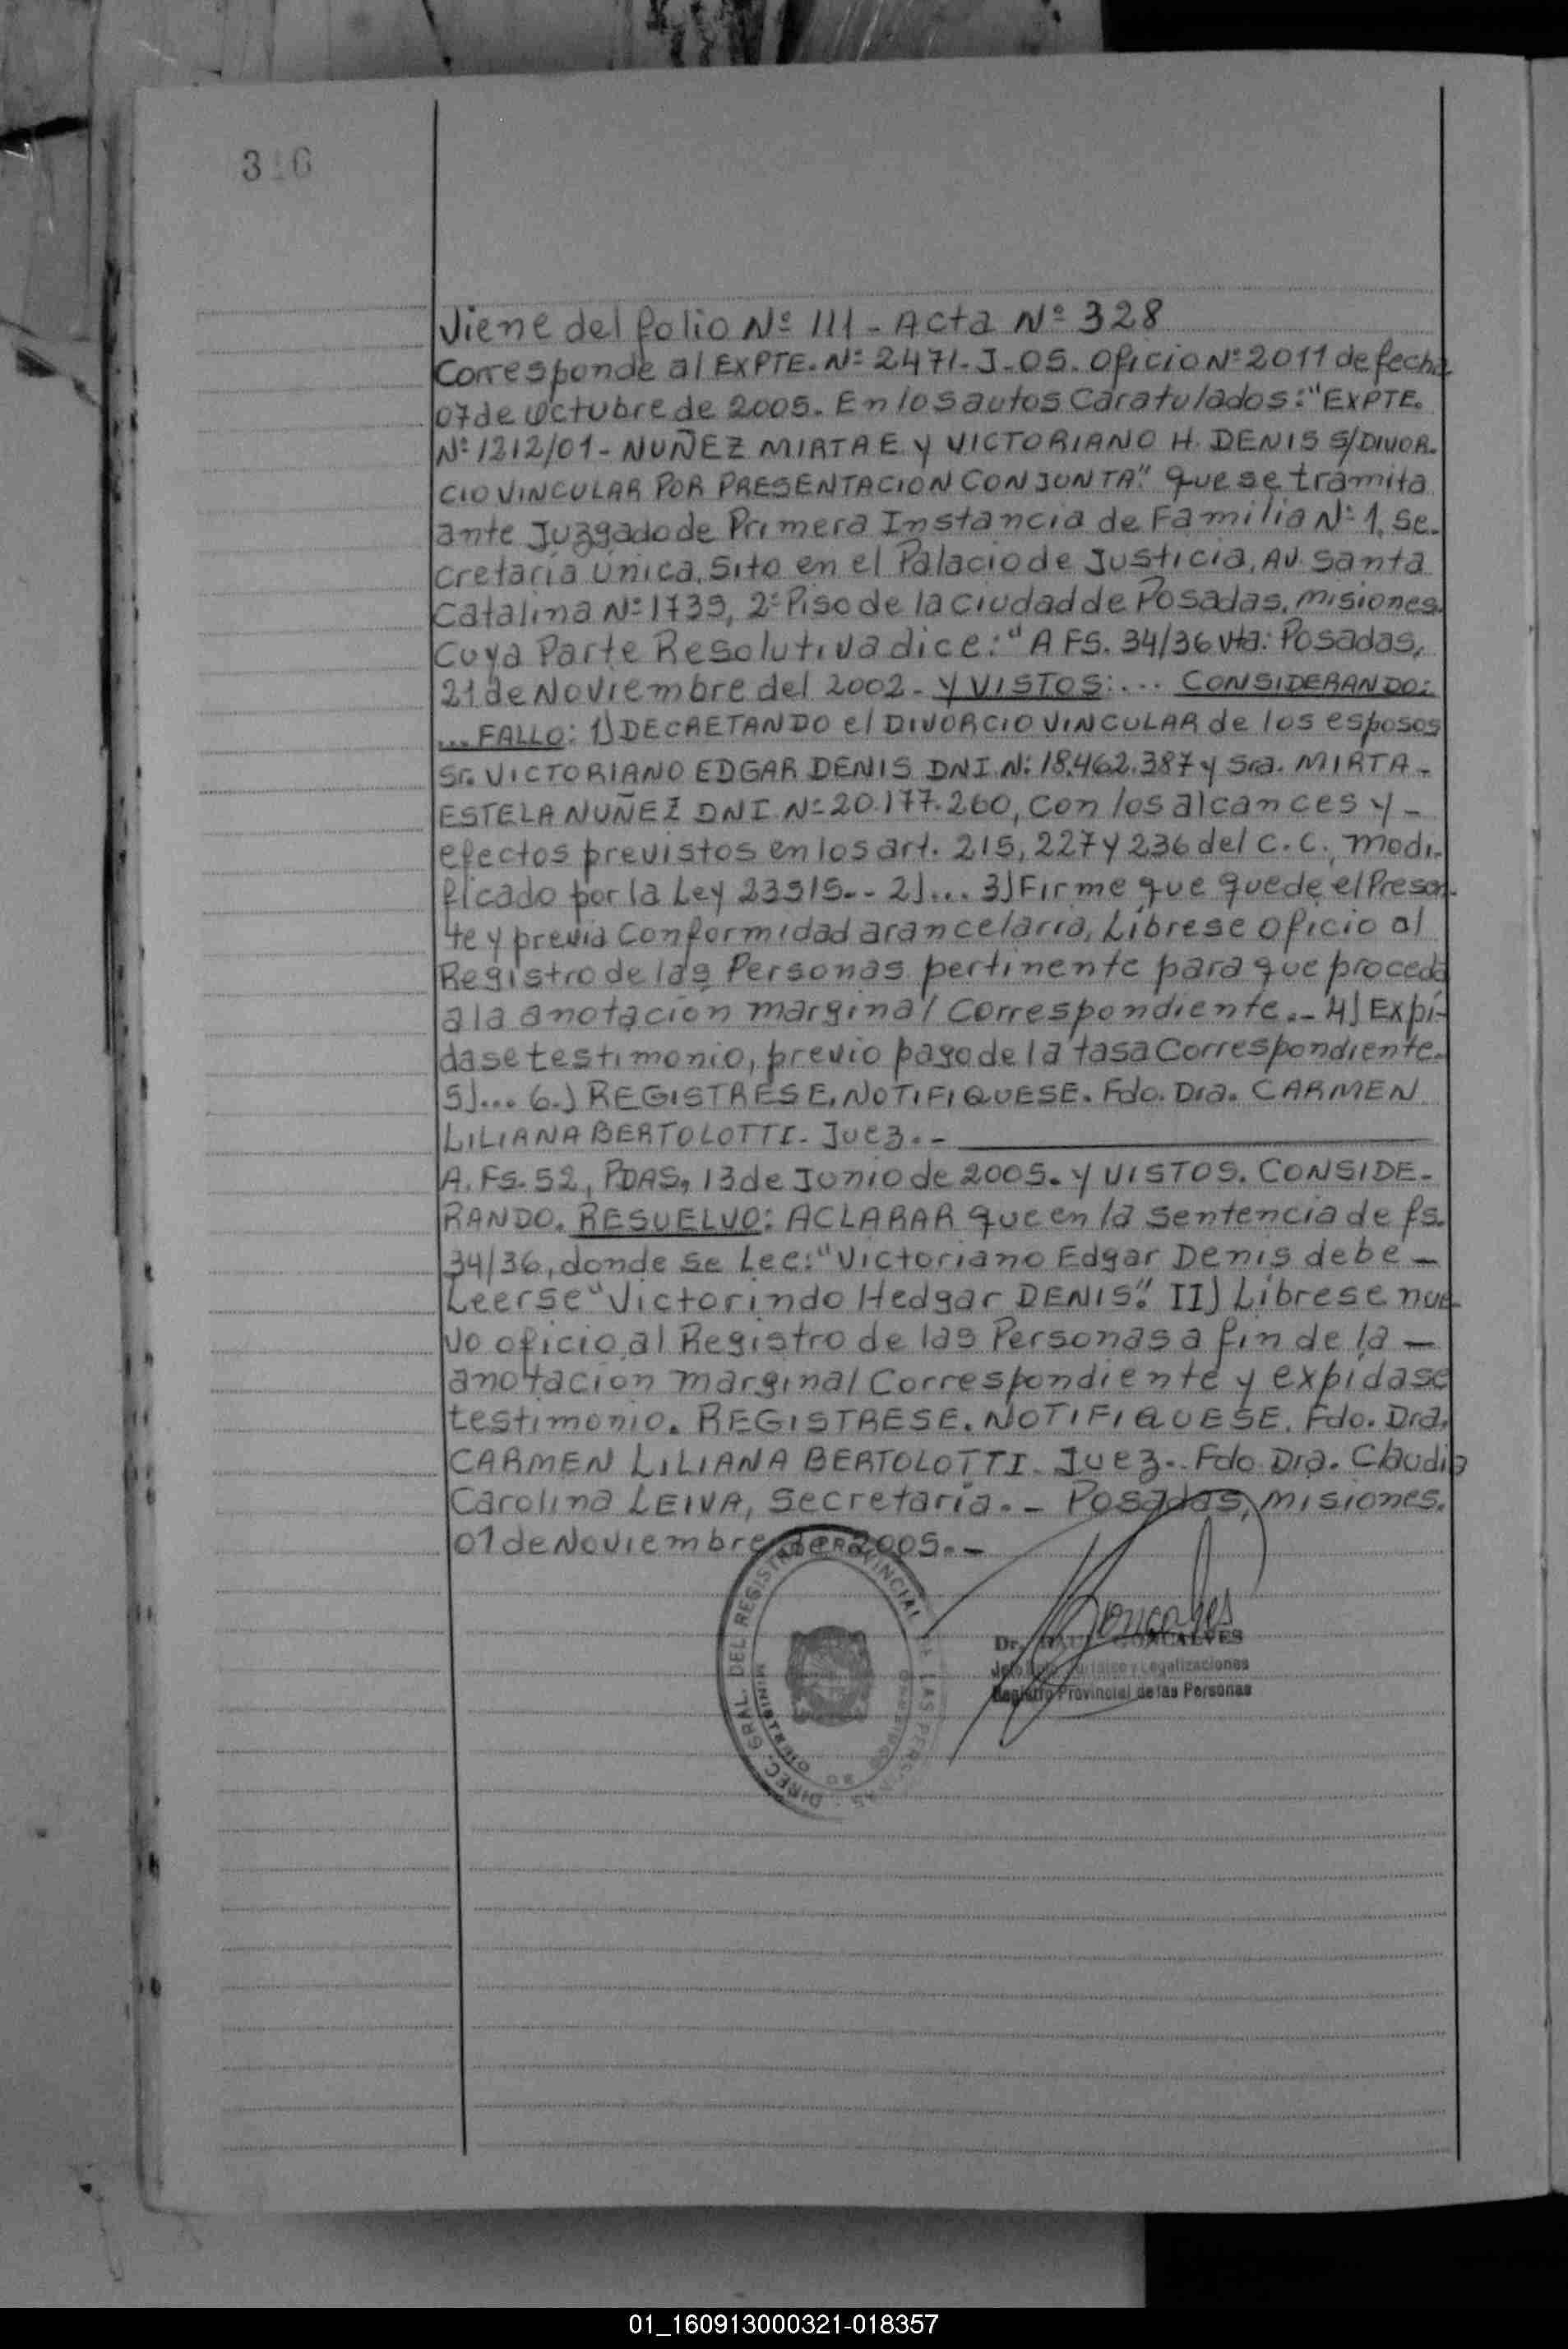 316
Viene del folio Nº 111 - Acta Nº 328
Corresponde al EXPTE. Nº 2471-J-05. Oficio Nº 2011 de fecha
07 de Octubre de 2005. En los autos Caratulados: "EXPTE.
Nº 1212/01 - NUÑEZ MIRTA E y VICTORIANO H. DENIS S/DIVOR-
CIO VINCULAR POR PRESENTACION CONJUNTA". que se tramita
ante Juzgado de Primera Instancia de Familia Nº 1, Se-
cretaría Única, Sito en el Palacio de Justicia, Av. Santa
Catalina Nº 1735, 2º Piso de la ciudad de Posadas, Misiones.
Cuya Parte Resolutiva dice: "A FS. 34/36 vta: Posadas,
21 de Noviembre del 2002. Y VISTOS:... CONSIDERANDO:
... FALLO: 1) DECRETANDO el DIVORCIO VINCULAR de los esposos
Sr. VICTORIANO EDGAR DENIS DNI Nº 18.462.387 y Sra. MIRTA -
ESTELA NUÑEZ DNI Nº 20.177.260, con los alcances y -
efectos previstos en los art. 215, 227 y 236 del C.C., modi-
ficado por la Ley 23515.- 2)... 3) Firme que quede el Presen-
te y previa Conformidad arancelaria, Líbrese oficio al
Registro de las Personas pertinente para que proceda
a la anotación marginal Correspondiente.- 4) Expí-
dase testimonio, previo pago de la tasa Correspondiente.
5)... 6.) REGISTRESE, NOTIFIQUESE. Fdo. Dra. CARMEN
LILIANA BERTOLOTTI. Juez.-
A. Fs. 52, PDAS, 13 de Junio de 2005. Y VISTOS. CONSIDE-
RANDO. RESUELVO: ACLARAR que en la sentencia de fs.
34/36, donde se Lee: "Victoriano Edgar Denis debe -
Leerse "Victorindo Hedgar DENIS". II) Líbrese nue-
vo oficio al Registro de las Personas a fin de la -
anotación marginal Correspondiente y expídase
testimonio. REGISTRESE. NOTIFIQUESE. Fdo. Dra.
CARMEN LILIANA BERTOLOTTI. Juez.- Fdo Dra. Claudia
Carolina LEIVA, Secretaría.- Posadas, Misiones.
01 de Noviembre de 2005.-
DIREC. GRAL. DEL REGISTRO PROVINCIAL DE LAS PERSONAS
MINISTERIO DE GOBIERNO
Goncalves
Dr. RAUL GONCALVES
Jefe Dpto. Jurídico y Legalizaciones
Registro Provincial de las Personas
01_160913000321-018357